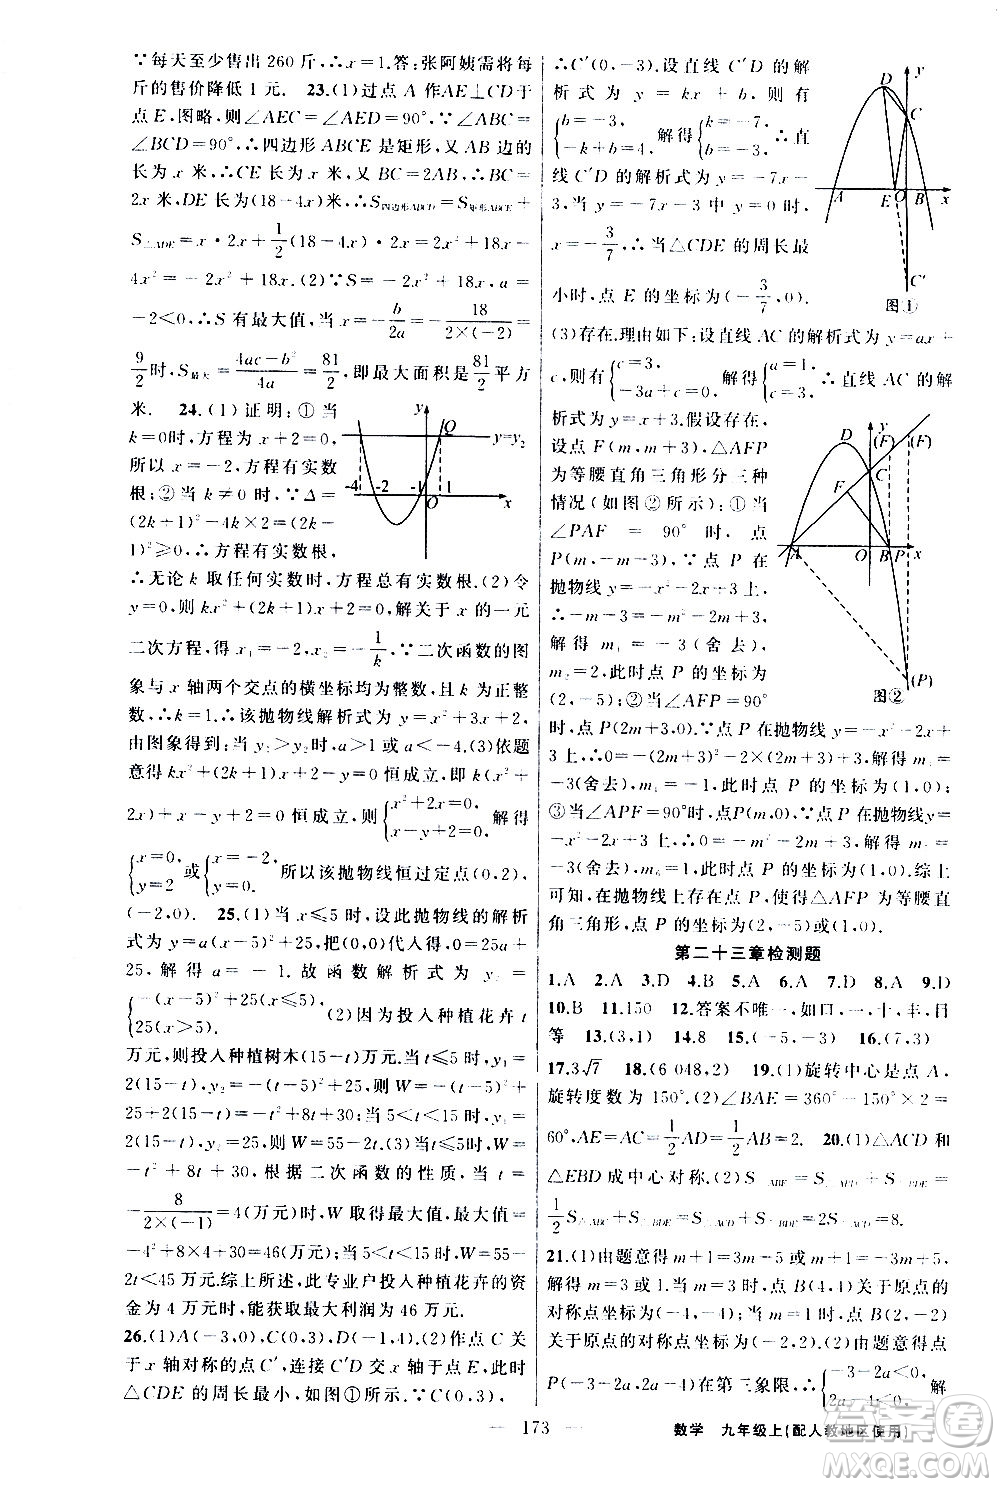 ∵每天至少售出 260 斤,∴x=1.答:张阿姨需将每
斤的售价降低 1 元. 23.(1)过点 A 作AE⊥CD于
点 E,图略,则∠AEC=∠AED=90°,∵∠ABC=
∠BCD=90°,∴四边形 ABCE 是矩形,又 AB 边的
长为 x 米,∴CE 长为 x 米,又 BC=2AB,∴BC=
2x 米,DE 长为(18-4x)米,∴S四边形ABCD=S矩形ABCE+
S△ADE=x·2x+1/2(18-4x)·2x=2x²+18x-
4x²=-2x²+18x.(2)∵S=-2x²+18x,a=
-2<0,∴S 有最大值,当 x=-b/2a=-18/(2×(-2))=
9/2时,S最大=(4ac-b²)/4a=81/2,即最大面积是81/2平方
米. 24.(1)证明:①当
k=0时,方程为 x+2=0,
所以 x=-2,方程有实数
根;②当 k≠0 时,∵Δ=
(2k+1)²-4k×2=(2k-
1)²≥0,∴方程有实数根,
∴无论 k 取任何实数时,方程总有实数根.(2)令
y=0,则 kx²+(2k+1)x+2=0,解关于 x 的一元
二次方程,得 x₁=-2,x₂=-1/k,∵二次函数的图
象与 x 轴两个交点的横坐标均为整数,且 k 为正整
数,∴k=1.∴该抛物线解析式为 y=x²+3x+2,
由图象得到:当 y₁>y₂时,a>1 或 a<-4.(3)依题
意得 kx²+(2k+1)x+2-y=0 恒成立,即 k(x²+
2x)+x-y+2=0 恒成立,则{x²+2x=0, x-y+2=0. 解得
{x=0, y=2 或{x=-2, y=0. 所以该抛物线恒过定点(0,2),
(-2,0). 25.(1)当 x≤5 时,设此抛物线的解析
式为 y=a(x-5)²+25,把(0,0)代入得 0=25a+
25,解得 a=-1.故函数解析式为 y₂=
{-(x-5)²+25(x≤5), 25(x>5). (2)因为投入种植花卉 t
万元,则投入种植树木(15-t)万元.当 t≤5 时,y₁=
2(15-t),y₂=-(t-5)²+25,则 W=-(t-5)²+
25+2(15-t)=-t²+8t+30.当 t>5 时,y₁=
2(15-t),y₂=25,则 W=55-2t.(3)当 t≤5 时,W=
-t²+8t+30,根据二次函数的性质,当 t=
-8/(2×(-1))=4(万元)时,W 取得最大值,最大值=
-4²+8×4+30=46(万元);当 t>5时,W=55-2t<
46万元.综上所述,此专业户投入种植花卉的资
金为 4 万元时,能获取最大利润为 46 万元.
26.(1)A(-3,0),C(0,3),D(-1,4).(2)作点 C 关
于 x 轴对称的点 C′,连接 C′D 交 x 轴于点 E,此时
△CDE 的周长最小,如图①所示.∵C(0,3),
y
Q
y=y₂
-4 -2 -1 O 1 x
∴C′(0,-3).设直线 C′D 的解
析式为 y=kx+b,则有
{b=-3, -k+b=4. 解得{k=-7, b=-3. ∴直
线 C′D 的解析式为 y=-7x-
3,当 y=-7x-3 中 y=0 时,
x=-3/7,∴当△CDE 的周长最
小时,点 E 的坐标为(-3/7,0).
y
D
C
A E O B x
C′
图①
(3)存在.理由如下:设直线 AC 的解析式为 y=ax+
c,则有{c=3, -3a+c=0. 解得{a=1, c=3. ∴直线 AC 的解
析式为 y=x+3.假设存在,
设点 F(m,m+3),△AFP
为等腰直角三角形分三种
情况(如图②所示):①当
∠PAF=90°时,点
P(m,-m-3).∵点 P 在
抛物线 y=-x²-2x+3 上,
∴-m-3=-m²-2m+3,
解得 m₁=-3(舍去),
m₂=2,此时点 P 的坐标为
(2,-5);②当∠AFP=90°
y
D (F) (F)
C
F
A O B P x
(P)
图②
时,点 P(2m+3,0).∵点 P 在抛物线 y=-x²-2x+
3 上,∴0=-(2m+3)²-2(2m+3)+3,解得 m₁=
-3(舍去),m₂=-1,此时点 P 的坐标为(1,0);
③当∠APF=90°时,点P(m,0).∵点 P 在抛物线y=
-x²-2x+3 上,∴0=-m²-2m+3,解得 m₁=
-3(舍去),m₂=1,此时点 P 的坐标为(1,0).综上
可知,在抛物线上存在点 P,使得△AFP 为等腰直
角三角形,点 P 的坐标为(2,-5)或(1,0).
第二十三章检测题
1.A 2.C 3.D 4.B 5.A 6.A 7.D 8.A 9.D
10.B 11.150 12.答案不唯一,如口,一,十,丰,日
等 13.(3,1) 14.8 15.(-5,-3) 16.(7,3)
17.3√7 18.(6 048,2) 19.(1)旋转中心是点 A,
旋转度数为 150°.(2)∠BAE=360°-150°×2=
60°,AE=AC=1/2AD=1/2AB=2. 20.(1)△ACD 和
△EBD 成中心对称.(2)S△ABE=S△ABD+S△BDE=
1/2S△ABC+S△BDE=S△ACD+S△ACD=2S△ACD=8.
21.(1)由题意得 m+1=3m-1+3-m+5,
解得 m=3,∴点 B(4,1)关于原点的
对称点坐标为(-4,-1),点 B(2,-2)
关于原点的对称点坐标为(-2,2).(2)由题意得点
P(-3-2a,2a-4)在第三象限,∴{-3-2a<0, 2a-4<0. 解
— 173 —
数学 九年级上(配人教地区使用)
答案圈
MXQE.COM